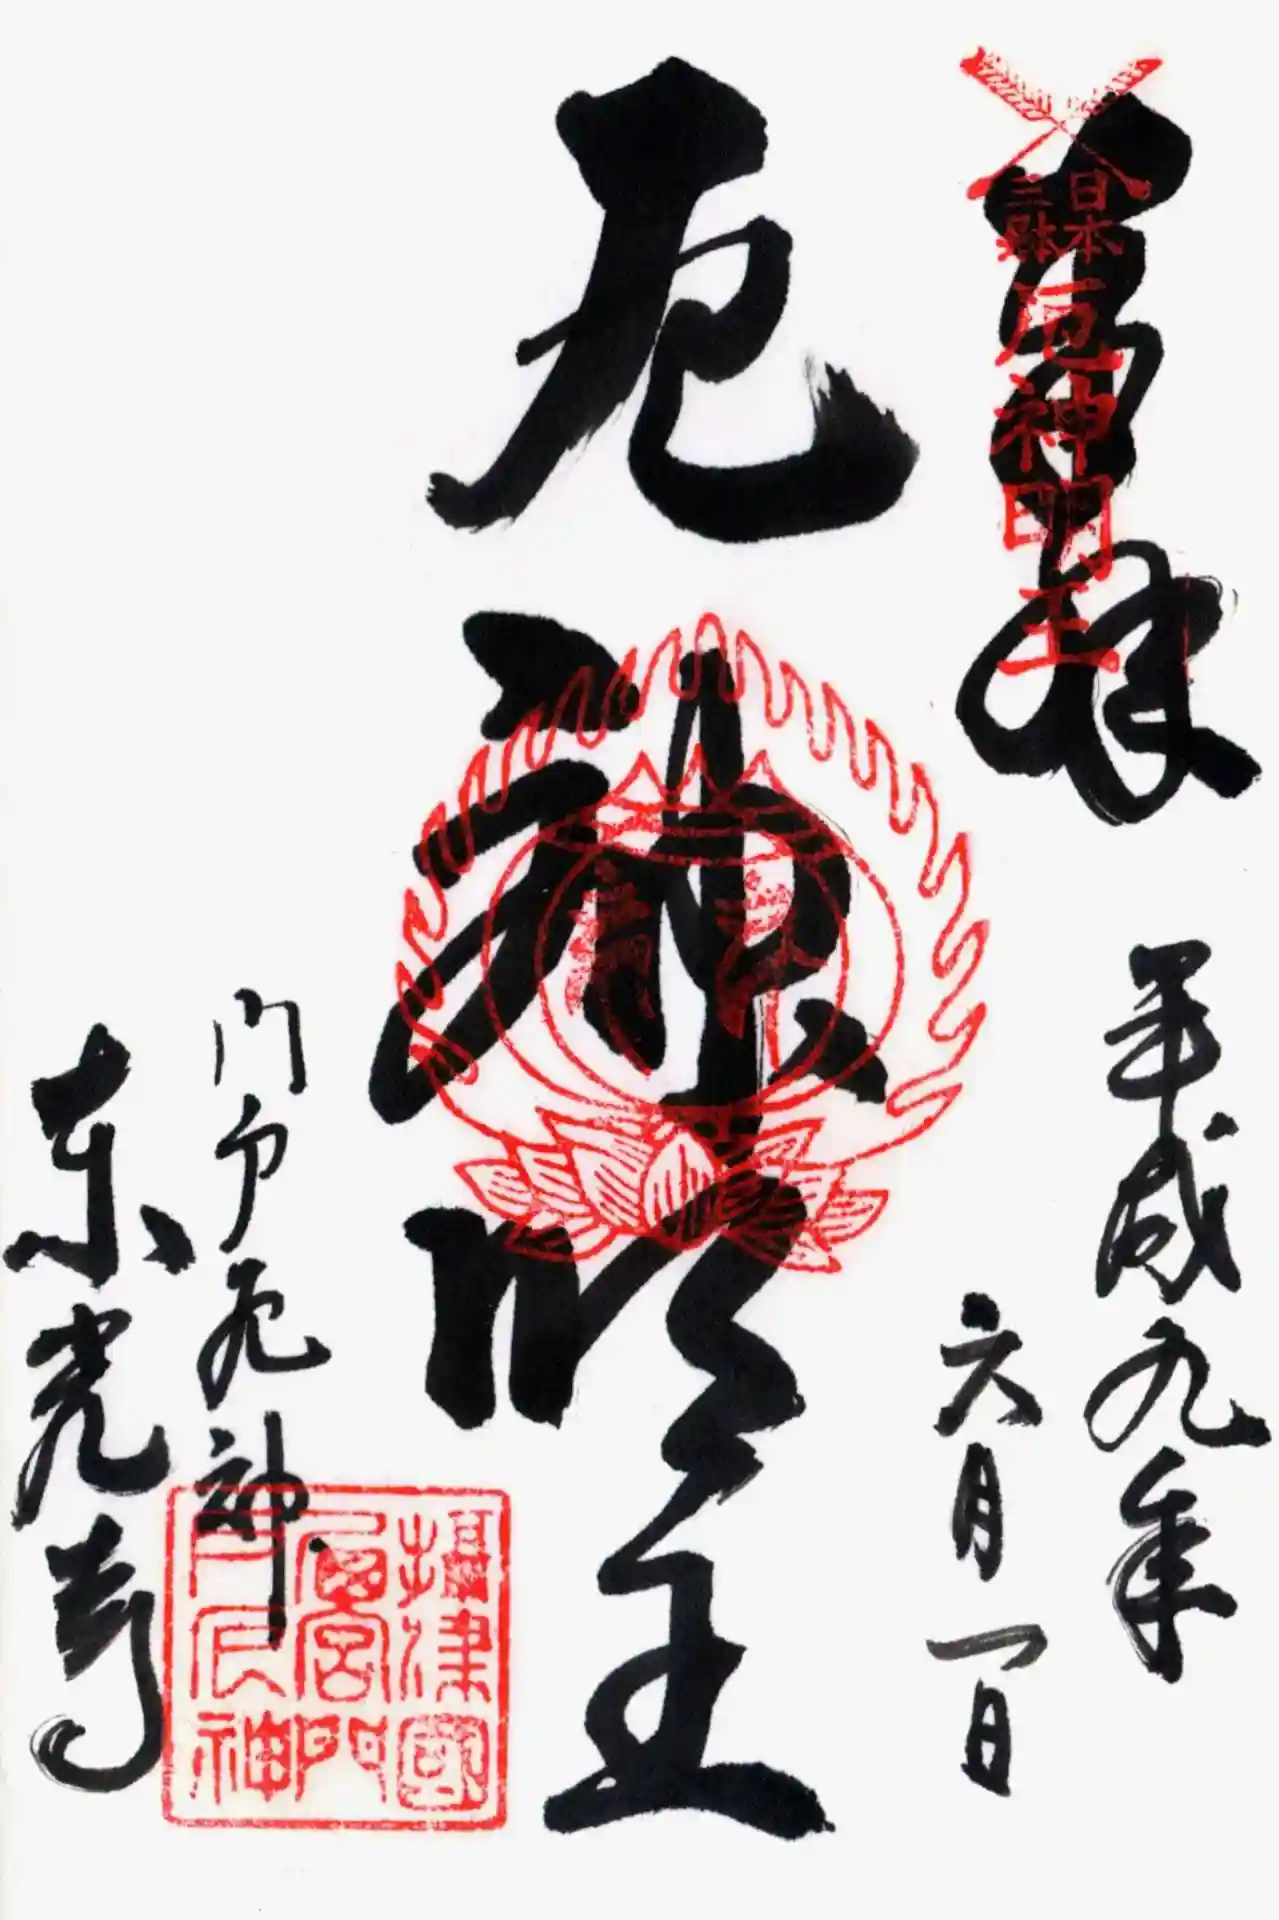 奉拝
日本
三躰
厄神明王
平成九年
六月一日
厄神明王
門戸厄神
東光寺
攝津國
西宮門
戸厄神